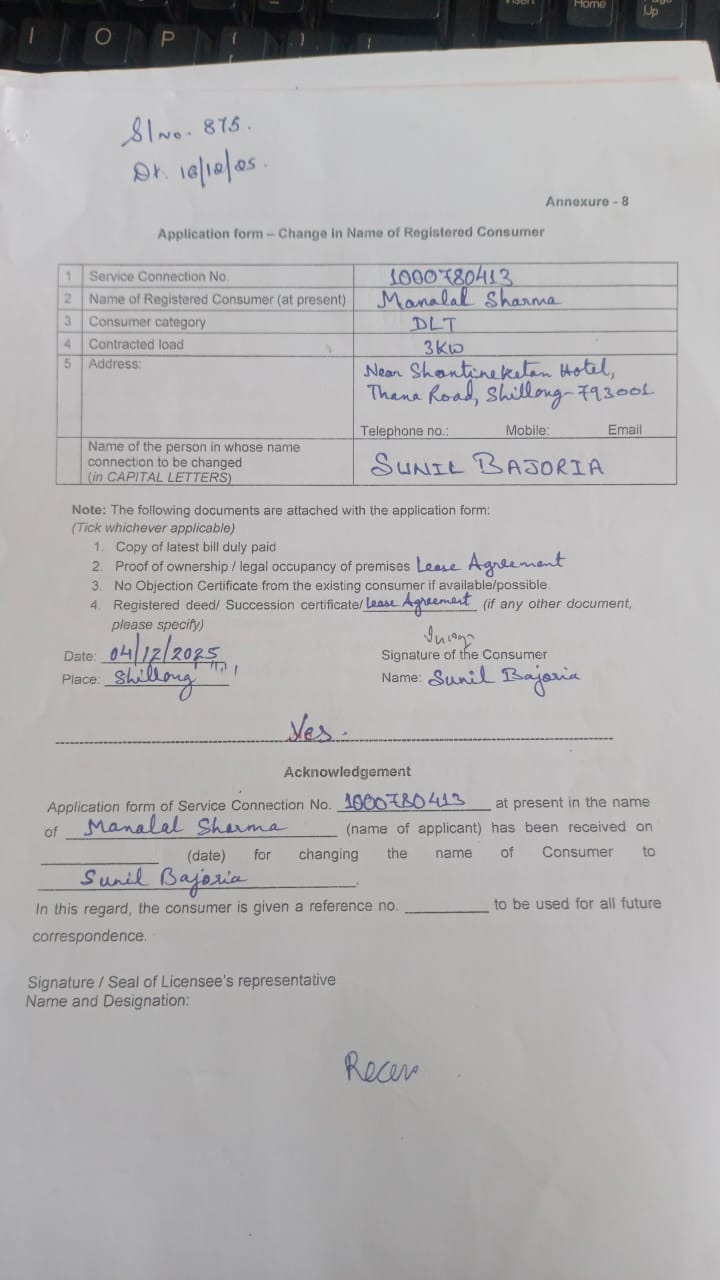 Sl No. 875.
Dt. 16/12/25.
Annexure - 8
Application form – Change in Name of Registered Consumer
1 Service Connection No. 1000780413
2 Name of Registered Consumer (at present) Manalal Sharma
3 Consumer category DLT
4 Contracted load 3KW
5 Address: Near Shantineketan Hotel,
Thana Road, Shillong-793001.
Telephone no.: Mobile: Email
Name of the person in whose name
connection to be changed SUNIL BAJORIA
(in CAPITAL LETTERS)
Note: The following documents are attached with the application form:
(Tick whichever applicable)
1. Copy of latest bill duly paid
2. Proof of ownership / legal occupancy of premises Lease Agreement
3. No Objection Certificate from the existing consumer if available/possible.
4. Registered deed/ Succession certificate/ Lease Agreement (if any other document,
please specify)
Date: 04/12/2025
Signature of the Consumer
Place: Shillong
Name: Sunil Bajoria
Yes.
Acknowledgement
Application form of Service Connection No. 1000780413 at present in the name
of Manalal Sharma (name of applicant) has been received on
(date) for changing the name of Consumer to
Sunil Bajoria.
In this regard, the consumer is given a reference no. to be used for all future
correspondence.
Signature / Seal of Licensee's representative
Name and Designation:
O
P
Home
Up